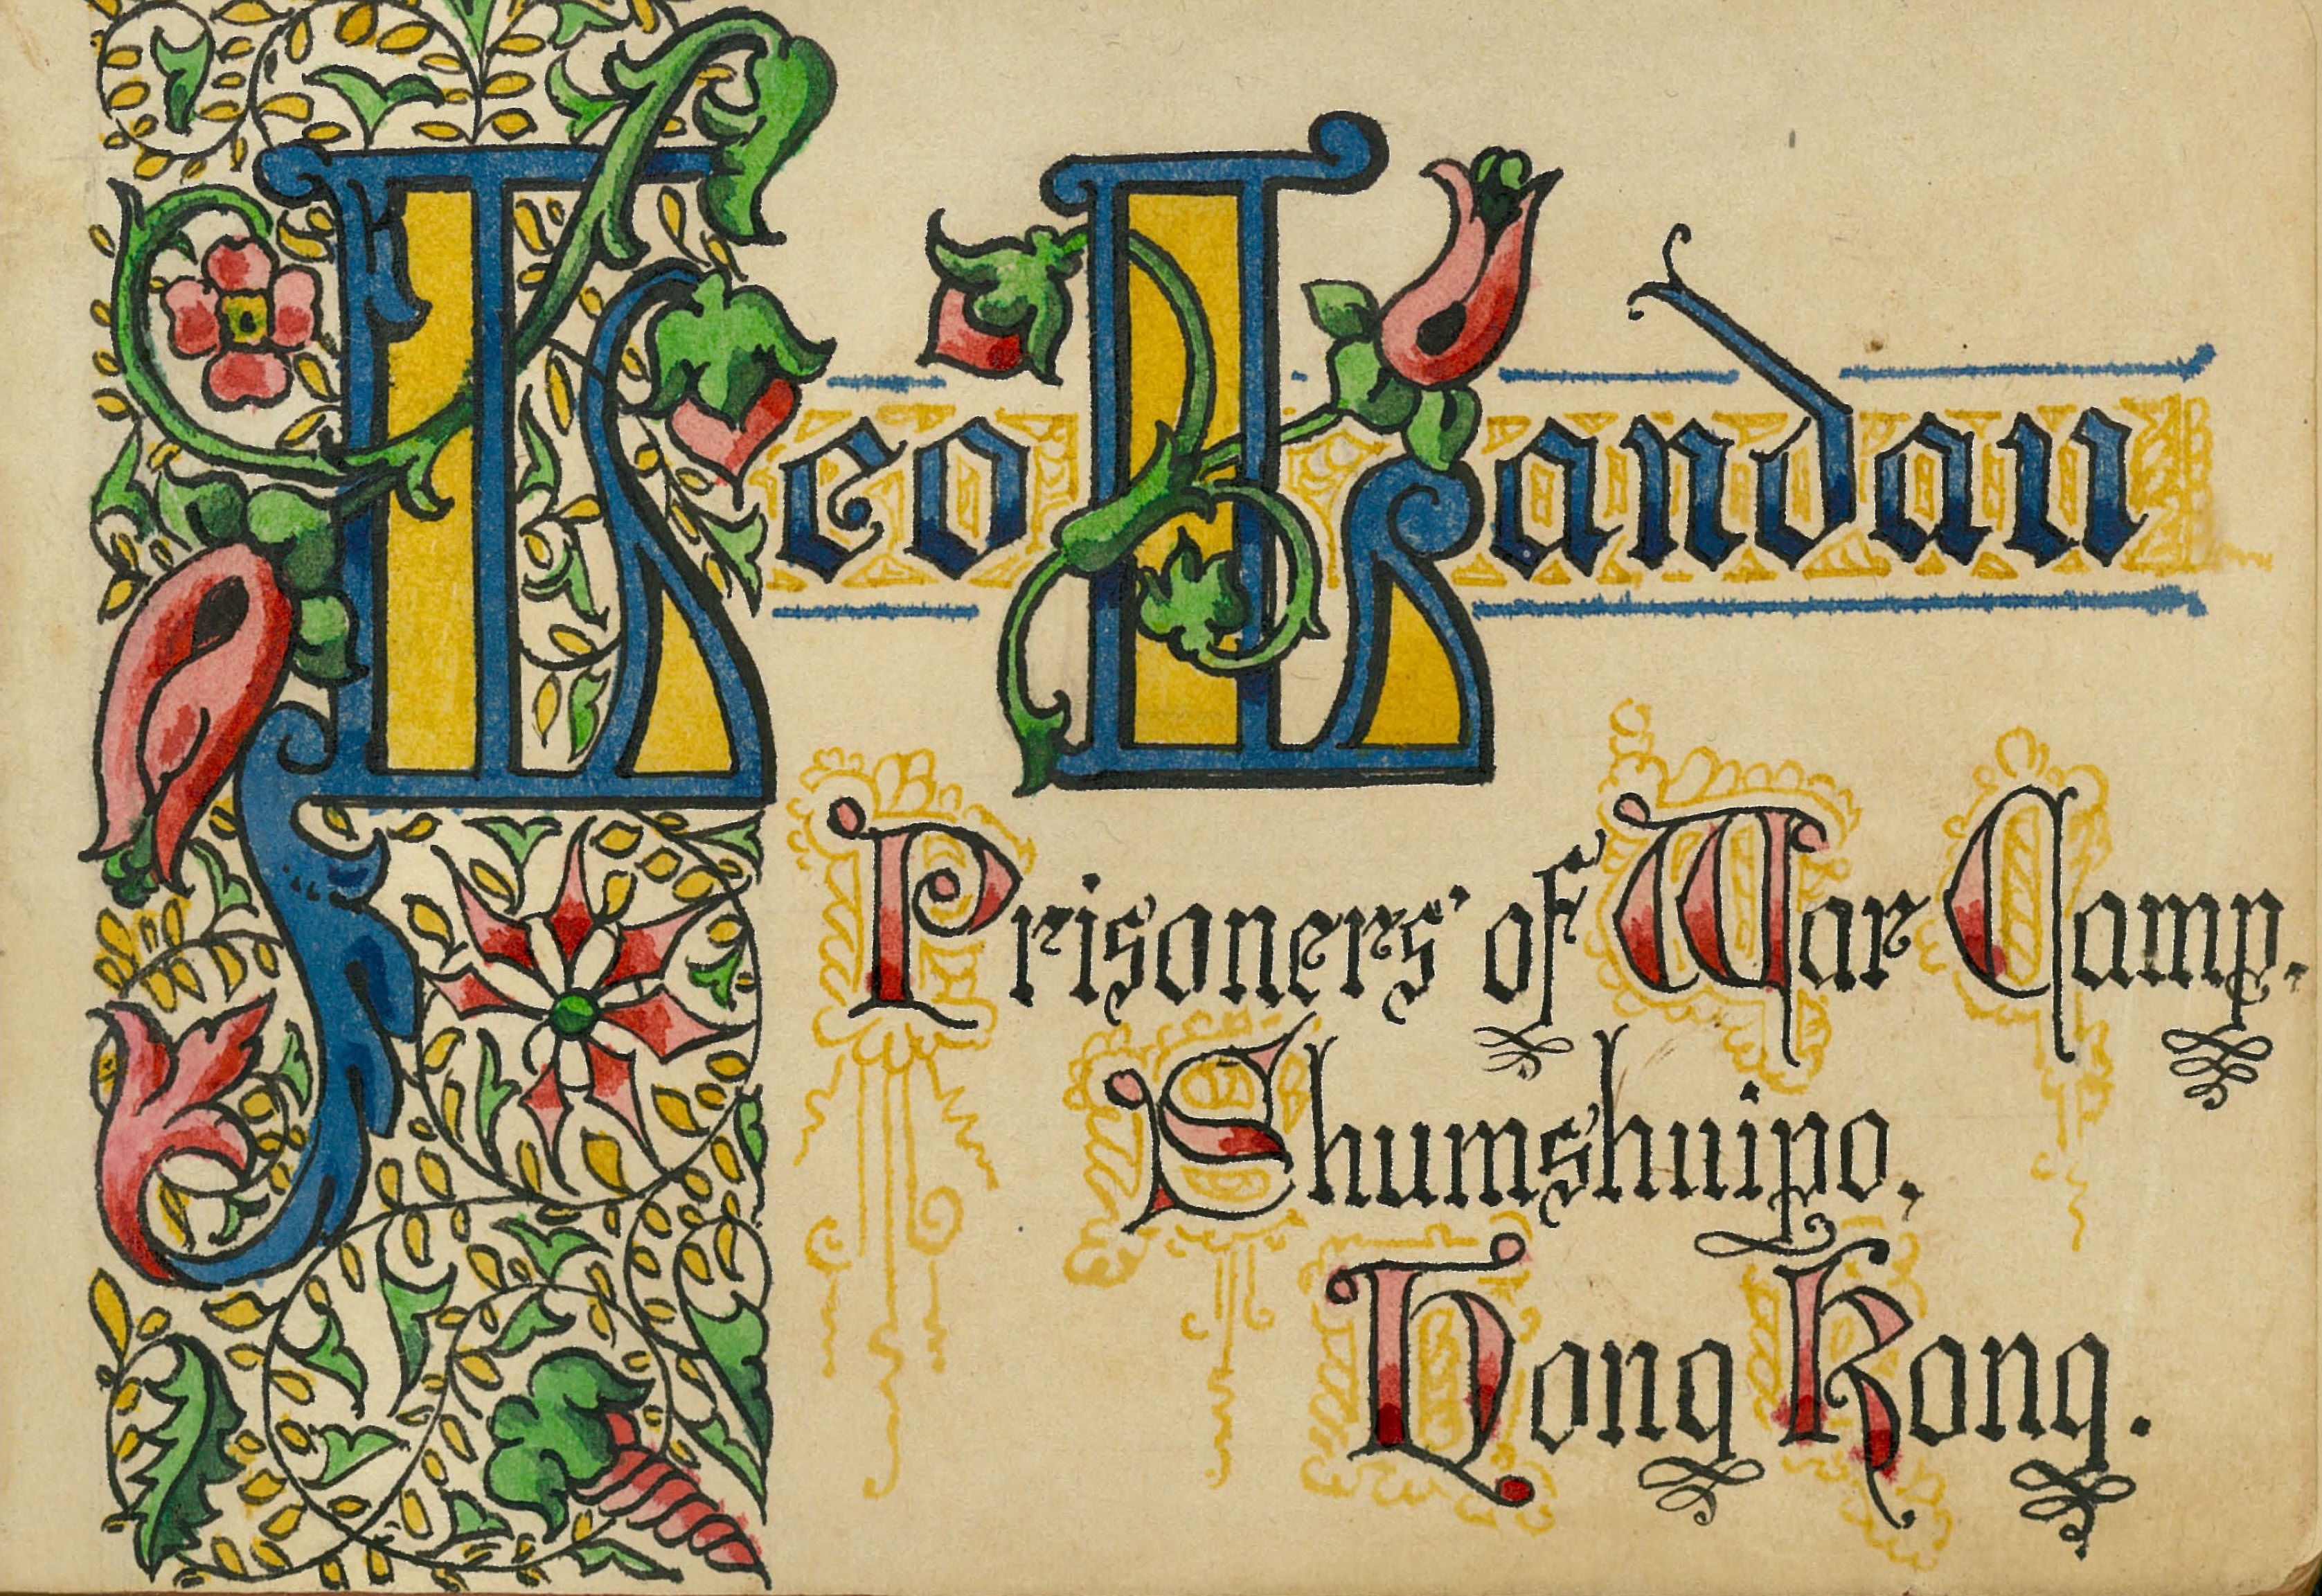 Leo Landau
Prisoners' of War Camp.
Shumshuipo,
Hong Kong.